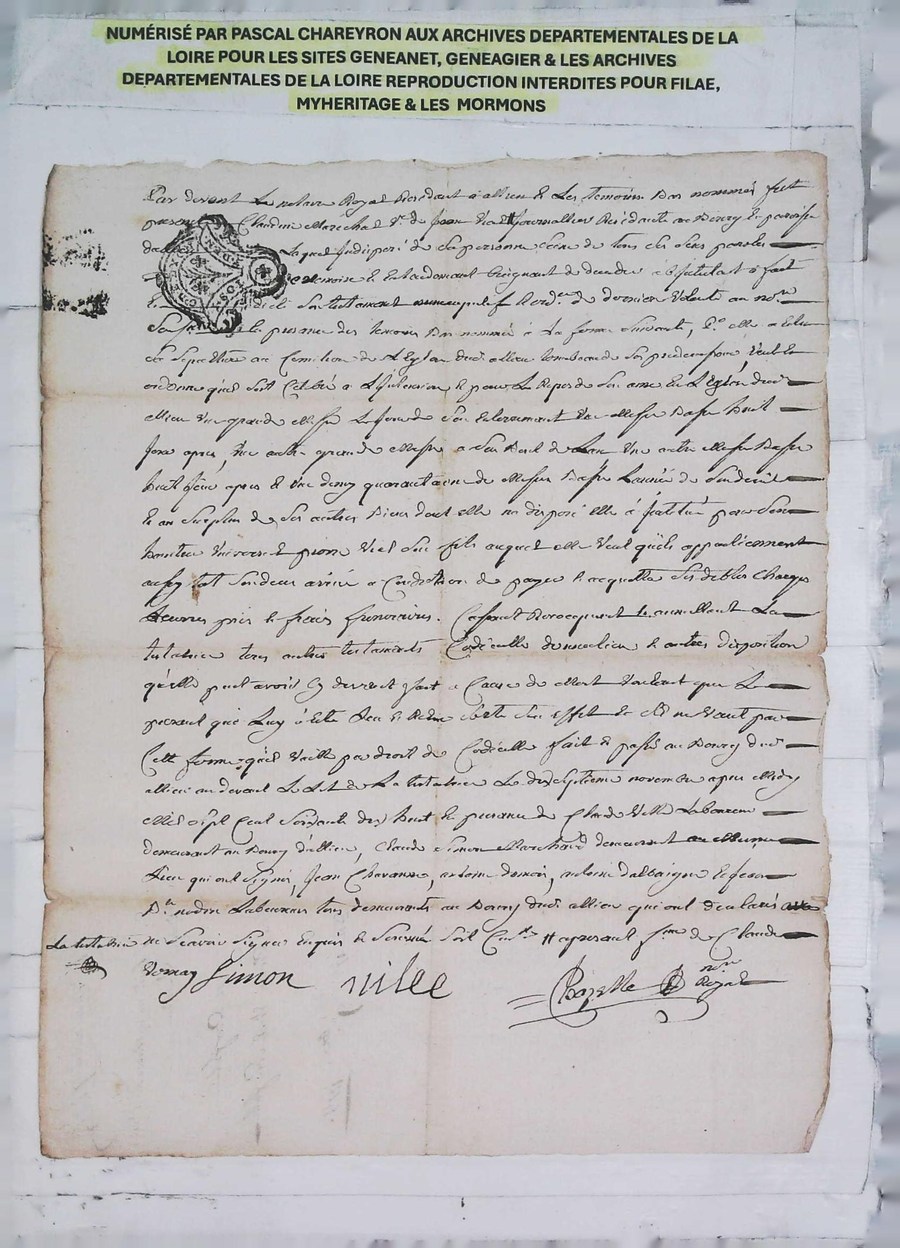 NUMÉRISÉ PAR PASCAL CHAREYRON AUX ARCHIVES DEPARTEMENTALES DE LA
LOIRE POUR LES SITES GENEANET, GENEAGIER & LES ARCHIVES
DEPARTEMENTALES DE LA LOIRE REPRODUCTION INTERDITES POUR FILAE,
MYHERITAGE & LES MORMONS
Par devant Le notaire Royal Residant a allieu & Les temoins Bas nommés fut
Claudine Marechal Vve de Jean Vial journallier Residante au Bourg & paroisse
Laquelle Indisposé de sa personne de tous ses sens parolle
memoire & Entandemant Craignant de
son testament nuncupatif & de derniere Volonté au
la presance des temoins Bas nommés a La forme Suivante, elle a Eslu
sa Sepulture au Cimitiere de L'Eglise dud. allieu tombeau de ses predecesseurs, Veut &
ordonne quil soit Celebré a & pour Le Repos de son ame En L'Eglise dud.
allieu Une grande Messe Le jour de son Enterrement Une Messe Basse huit
jours apres, Une autre grande Messe a son Bout de L'an Une autre Messe Basse
huit jours apres & Une demy quarantaine de Messes Basses L'année de son deces
& au surplus de ses autres Biens dont elle na disposé elle a Institué pour son
heritier Universel pierre Vial son fils auquel elle Veut quils appartiennent
aussy tot son deces arrivé a Condition de payer & acquitter ses debtes Charges
œuvres pies & frais funeraires. Cassant Revocquant & annullant La
testatrice tous autres testaments Codicille donnation & autres disposition
qu'elle peut avoir Cy devant fait a Cause de Mort Voulant que Le
presant que Luy a Eté Leu & Redit sorte son effet & sil ne Vaut par
Cette forme qu'il Vaille par droit de Codicille fait & passé au Bourg dud.
allieu au devant Le Lit de La testatrice Le dixseptieme novembre apres Midy
Mil sept Cent Soixante dix huit En presance de Claude Ville Laboureur
demeurant au Bourg d'allieu, Claude Simon Marchand demeurant au Meme
Lieu qui ont signés, Jean Chavanne, antoine antoine
Laboureurs tous demeurants au Bourg dud. allieu qui ont declarés
La testatrice ne Scavoir Signer Enquis & Sommés de Claude
Simon ville Royal